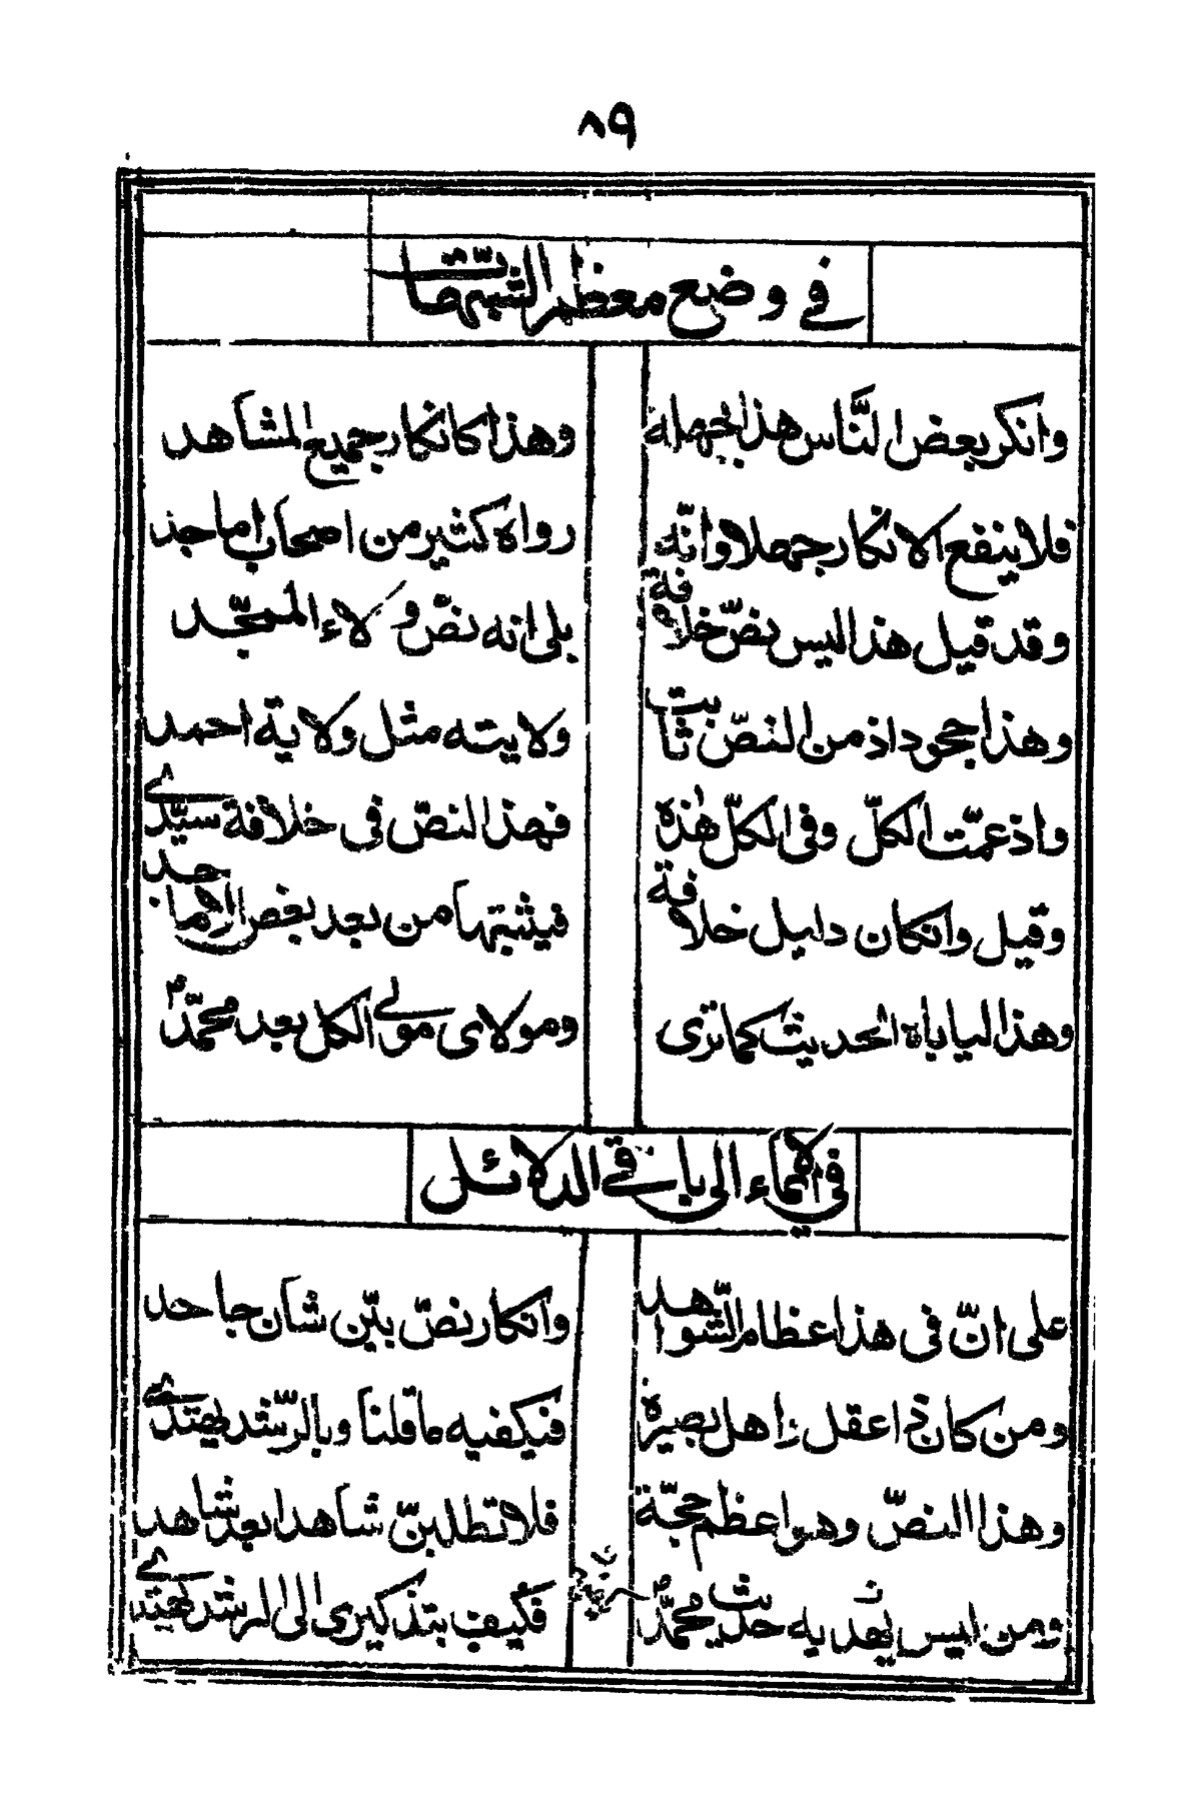 ٨٩
في وضع معظم الشبهات
وانكر بعض النّاس هذا بجهله وهذا كانكار جميع المشاهد
فلا ينفع الانكار جهلا وانّه رواه كثير من اصحاب اماجد
وقد قيل هذا ليس نصّ خلافة بلى انه نصّ ولاء الممجّد
وهذا جحود اذ من النصّ ثابت ولايته مثل ولاية احمد
واذ عمّت الكلّ وفى الكلّ هذه فهذا النصّ فى خلافة سيّدي
وقيل وان كان دليل خلافة فيثبتها من بعد بعض الاماجد
وهذا لياباه الحديث كما ترى ومولاى مولي الكل بعد محمّد
في الايماء الى باقي الدلائل
على انّ فى هذا عظام الشّواهد وانكار نصّ بيّن شان جاحد
ومن كان ذا عقل واهل بصيرة فيكفيه ما قلنا وبالرّشد يهتدي
وهذا النصّ وهو اعظم حجّة فلا تطلبنّ شاهدا بعد شاهد
ومن ليس يهديه حديث محمّد فكيف بتذكيرى الى الرشد يهتدي